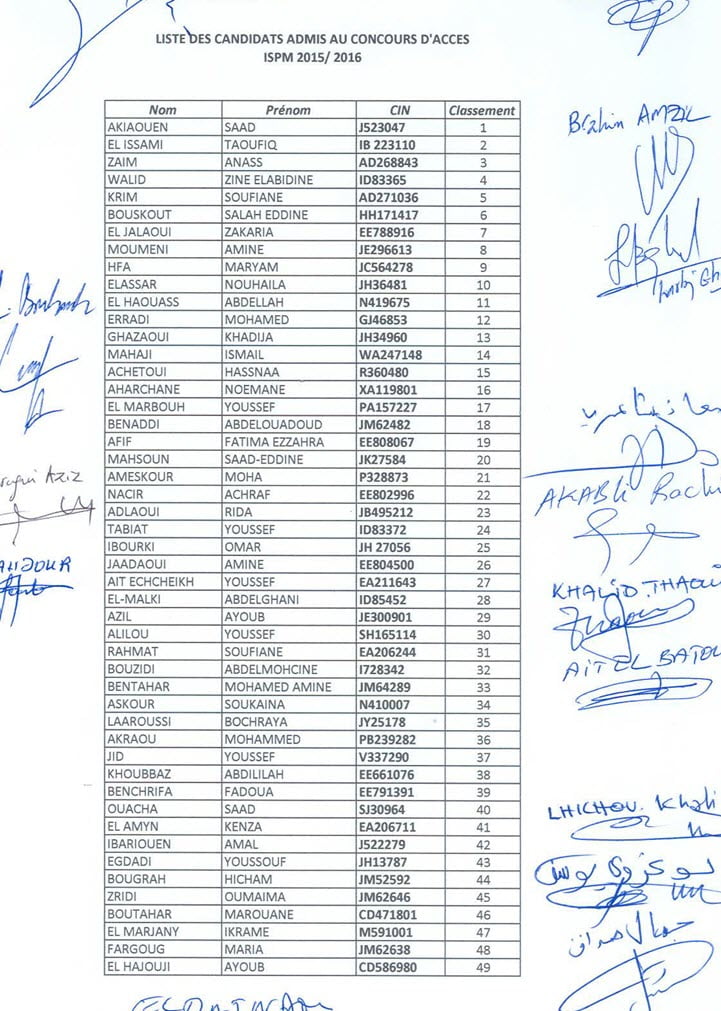 LISTE DES CANDIDATS ADMIS AU CONCOURS D'ACCES
ISPM 2015/ 2016
Nom Prénom CIN Classement
AKIAOUEN SAAD J523047 1
EL ISSAMI TAOUFIQ IB 223110 2
ZAIM ANASS AD268843 3
WALID ZINE ELABIDINE ID83365 4
KRIM SOUFIANE AD271036 5
BOUSKOUT SALAH EDDINE HH171417 6
EL JALAOUI ZAKARIA EE788916 7
MOUMENI AMINE JE296613 8
HFA MARYAM JC564278 9
ELASSAR NOUHAILA JH36481 10
EL HAOUASS ABDELLAH N419675 11
ERRADI MOHAMED GJ46853 12
GHAZAOUI KHADIJA JH34960 13
MAHAJI ISMAIL WA247148 14
ACHETOUI HASSNAA R360480 15
AHARCHANE NOEMANE XA119801 16
EL MARBOUH YOUSSEF PA157227 17
BENADDI ABDELOUADOUD JM62482 18
AFIF FATIMA EZZAHRA EE808067 19
MAHSOUN SAAD-EDDINE JK27584 20
AMESKOUR MOHA P328873 21
NACIR ACHRAF EE802996 22
ADLAOUI RIDA JB495212 23
TABIAT YOUSSEF ID83372 24
IBOURKI OMAR JH 27056 25
JAADAOUI AMINE EE804500 26
AIT ECHCHEIKH YOUSSEF EA211643 27
EL-MALKI ABDELGHANI ID85452 28
AZIL AYOUB JE300901 29
ALILOU YOUSSEF SH165114 30
RAHMAT SOUFIANE EA206244 31
BOUZIDI ABDELMOHCINE I728342 32
BENTAHAR MOHAMED AMINE JM64289 33
ASKOUR SOUKAINA N410007 34
LAAROUSSI BOCHRAYA JY25178 35
AKRAOU MOHAMMED PB239282 36
JID YOUSSEF V337290 37
KHOUBBAZ ABDILILAH EE661076 38
BENCHRIFA FADOUA EE791391 39
OUACHA SAAD SJ30964 40
EL AMYN KENZA EA206711 41
IBARIOUEN AMAL J522279 42
EGDADI YOUSSOUF JH13787 43
BOUGRAH HICHAM JM52592 44
ZRIDI OUMAIMA JM62646 45
BOUTAHAR MAROUANE CD471801 46
EL MARJANY IKRAME M591001 47
FARGOUG MARIA JM62638 48
EL HAJOUJI AYOUB CD586980 49
Brahim AMZIL
AKABLi Rachi
KHALID THAOUI
AIT EL BATOU
LHICHOU Khali
Aziz